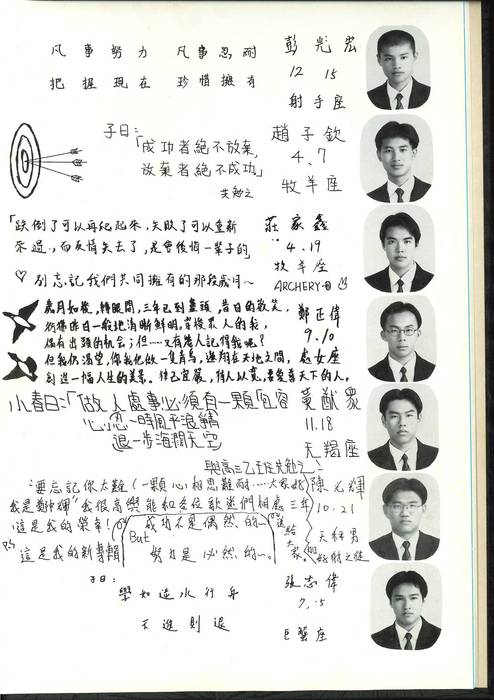 凡事努力 凡事忍耐
把握現在 珍惜擁有
彭光宏
12 15
射手座
子曰：
「成功者絕不放棄，
放棄者絕不成功」
共勉之
趙子欽
4、7
牧羊座
「跌倒了可以再爬起來，失敗了可以重新
來過，而友情失去了，是會後悔一輩子的
♡別忘記我們共同擁有的那段歲月～
莊家鑫
4.19
牧羊座
ARCHERY
歲月如梭，轉眼間，三年已到盡頭，昔日的歡笑，
彷彿昨日一般地清晰鮮明，背後眾人的我，
但我仍渴望，你我化做一隻青鳥，遨翔在天地之間，
創造一幅人生的美景。律己宜嚴，待人以寬，
鄭正偉
9.10
處女座
小春曰：「做人處事必須有一顆寬容
心，忍一時風平浪靜
退一步海闊天空
與高三乙班共勉之！
黃
11.18
天羯座
要忘記你太難（一顆心相思難耐……大家好
我是 我很高興能和各位歌迷們相處三年
這是我的榮幸！
P.S 這是我的新專輯
成功不是偶然的～
But
努力是必然的～。
送給大家的
陳元輝
10.21
天秤男
子曰：
學如逆水行舟
不進則退
張志偉
7.5
巨蟹座